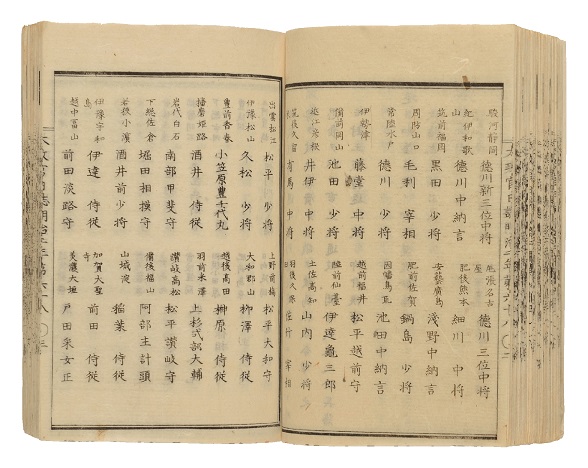 駿河静岡 徳川新三位中将 尾張名古屋 徳川三位中将
紀伊和歌山 徳川中納言 肥後熊本 細川中将
筑前福岡 黒田少将 安藝廣島 浅野中納言
周防山口 毛利宰相 肥前佐賀 鍋島少将
常陸水戸 徳川少将 因幡鳥取 池田中納言
伊勢津 藤堂中将 越前福井 松平越前守
備前岡山 池田少将 陸前仙臺 伊達亀三郎
近江彦根 井伊中将 土佐高知 山内少将
筑後久留 有馬中将 羽後久保 佐竹宰相
出雲松江 松平少将 上野前橋 松平大和守
伊豫松山 久松少将 大和郡山 柳澤侍従
豊前香春 小笠原豊千代丸 越後高田 榊原侍従
播磨姫路 酒井侍従 羽前米澤 上杉式部大輔
岩代白石 南部甲斐守 讃岐高松 松平讃岐守
下総佐倉 堀田相摸守 備後福山 阿部主計頭
若狭小濱 酒井前少将 山城淀 稲葉侍従
伊豫宇和島 伊達侍従 加賀大聖寺 前田侍従
越中富山 前田淡路守 美濃大垣 戸田采女正